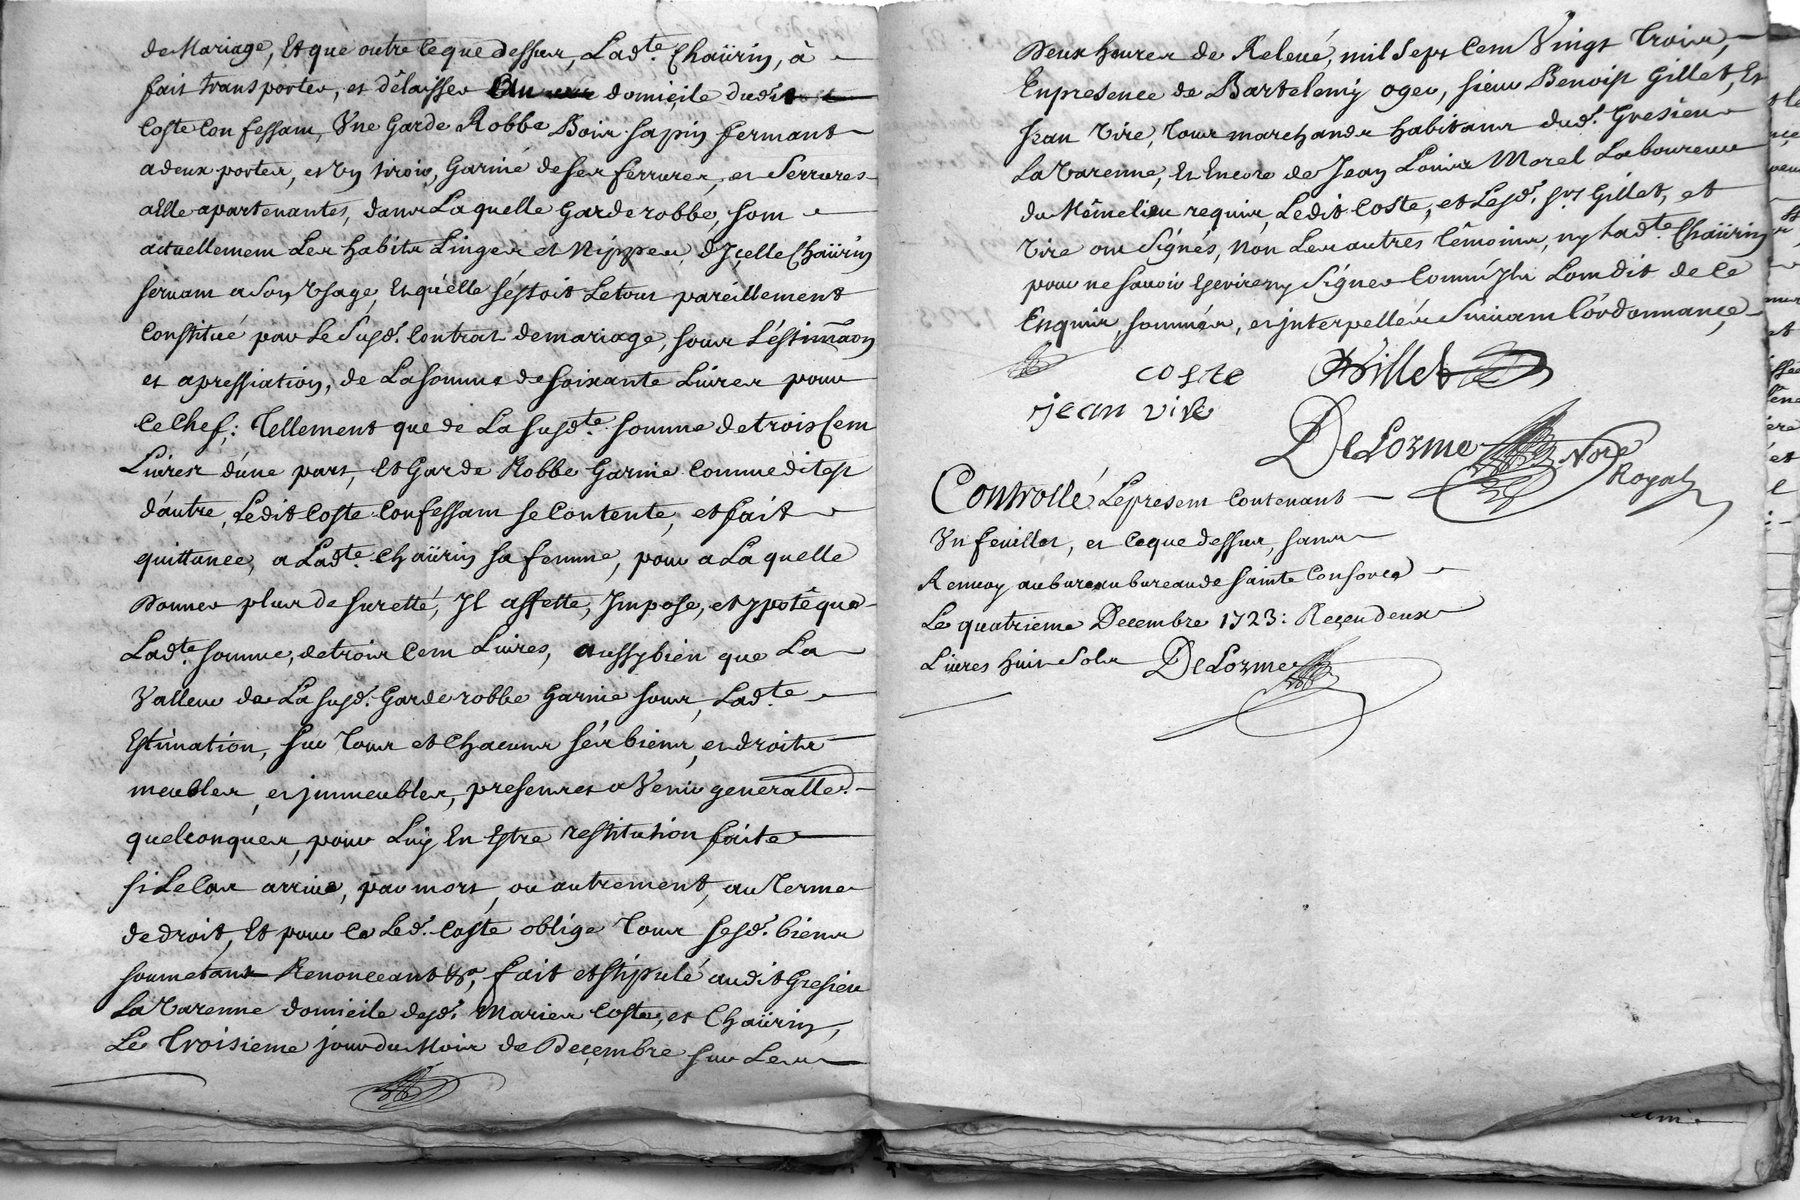 de Mariage, Et que outre ce que dessus, Lad.te Chaürin, à
fait transporter, et délaisser Au domicile dudit
Coste Confessant, Une Garde Robbe Bois sapin fermant
a deux portes, et Un tiroir, Garnie de ses ferrures, et Serrures
a Elle apartenantes, dans Laquelle Garderobbe, sont
actuellement Les habits Linges et Nippes, d'Jcelle Chaürin
servant a Son Usage, Et qu'elle s'éstoit Le tout paréillement
Constitué par Le Susd. Contrat de mariage, sous L'éstimaõn
et apressiation, de La somme de soixante Livres pour
Ce Chef; Tellement que de La susd.te somme de trois Cent
Livres d'une part, Et Garde Robbe Garnie Comme dit est
d'autre, Ledit Coste Confessant se Contente, et fait
quittance, a Lad.te Chaürin sa femme, pour a Laquelle
Donner plus de suretté, Jl affette, Jmpose, et ypotêque
Lad.te somme, de trois Cent Livres, aussy bien que La
Valleur de La susd. Garderobbe Garnie sous, Lad.te
Estimation, sur Tous et Chacuns sés biens, et droits
meubles, et jmmeubles, presents et a Venir generallem.
quelconques, pour Luy En Estre restitution faite
si Le Cas arrive, par mort, ou autrement, au Terme
de droit, Et pour Ce Led. Coste oblige Tous sesd. biens
soumetant Renonceant &a, fait et stipulé audit Gresieu
La Varenne domicile desd. Mariés Coste, et Chaürin,
Le Troisieme jour du Mois de Decembre sur Les
Deux heures de Relevé, mil Sept Cent Vingt Trois,
En presence de Bartelemy oger, sieur Benoist Gillet, Et
Jean Vire, Tous marchands habitans dud. Gresieu
La Varenne, Et Encore de Jean Louis Morel Laboureur
du Mêmelieu requis, Ledit Coste, et Lesd. srs Gillet, et
Vire ont Signés, Non Les autres têmoins, ny Lad.te Chaürin
pour ne savoir Signer Comm'Jls L'ont dit de Ce
Enquis, sommés, et jnterpellés Suivant L'ordonnance
coste Gillet
jean vire
DeLorme Nore
Royal
Controllé Le present Contenant
Un feuillet, et Ce que dessus, sans
Renvoy au bureau bureau de Sainte Consorce
Le quatrieme Decembre 1723: Reçeu deux
Livres huit Sols DeLorme